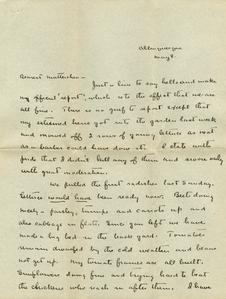 Albuquerque
May 8.
Dearest mother mia -
Just a line to say hello and make
my "report", which is to the effect that we are
all fine. There is no grief to report except that
my esteemed hens got into the garden last week
and mowed off 2 rows of young lettuce as neat
as a barber could have done it. I state with
pride that I didn't kill any of them and swore only
with great moderation.
We pulled the first radishes last Sunday.
Lettuce would have been ready now. Beets doing
nicely - parsley, turnips and carrots up and
also cabbage in flats. Since you left we have
made a big bed in the back yard. Tomatoes
remain dwarfed by the cold weather and beans
not yet up. My tomato frames are all built.
Sunflowers doing fine and trying hard to beat
the chickens who reach in after them. I have